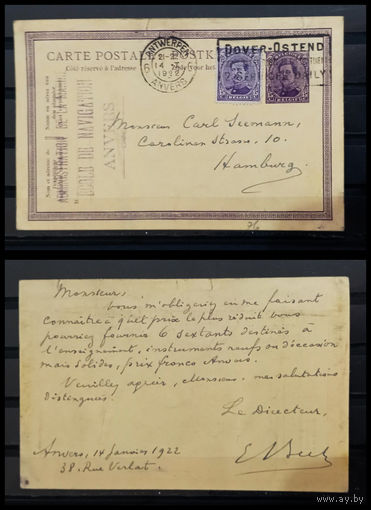 CARTE POSTALE
Côté réservé à l'adresse
ANTWERPEN
1922
ANVERS
DOVER-OSTEND
ADMINISTRATION DE LA MARINE
ÉCOLE DE NAVIGATION
ANVERS
Monsieur Carl Seemann,
Carolinen Strasse, 10.
Hamburg.
Monsieur,
Vous m'obligeriez en me faisant
connaître à quel prix le plus réduit vous
pourriez fournir 6 sextants destinés à
l'enseignement, instruments neufs ou d'occasion
mais solides, prix franco Anvers.
Veuillez agréer, Monsieur, mes salutations
distinguées.
Le Directeur,
Anvers, 14 Janvier 1922
38, Rue Verlat.
www.ay.by